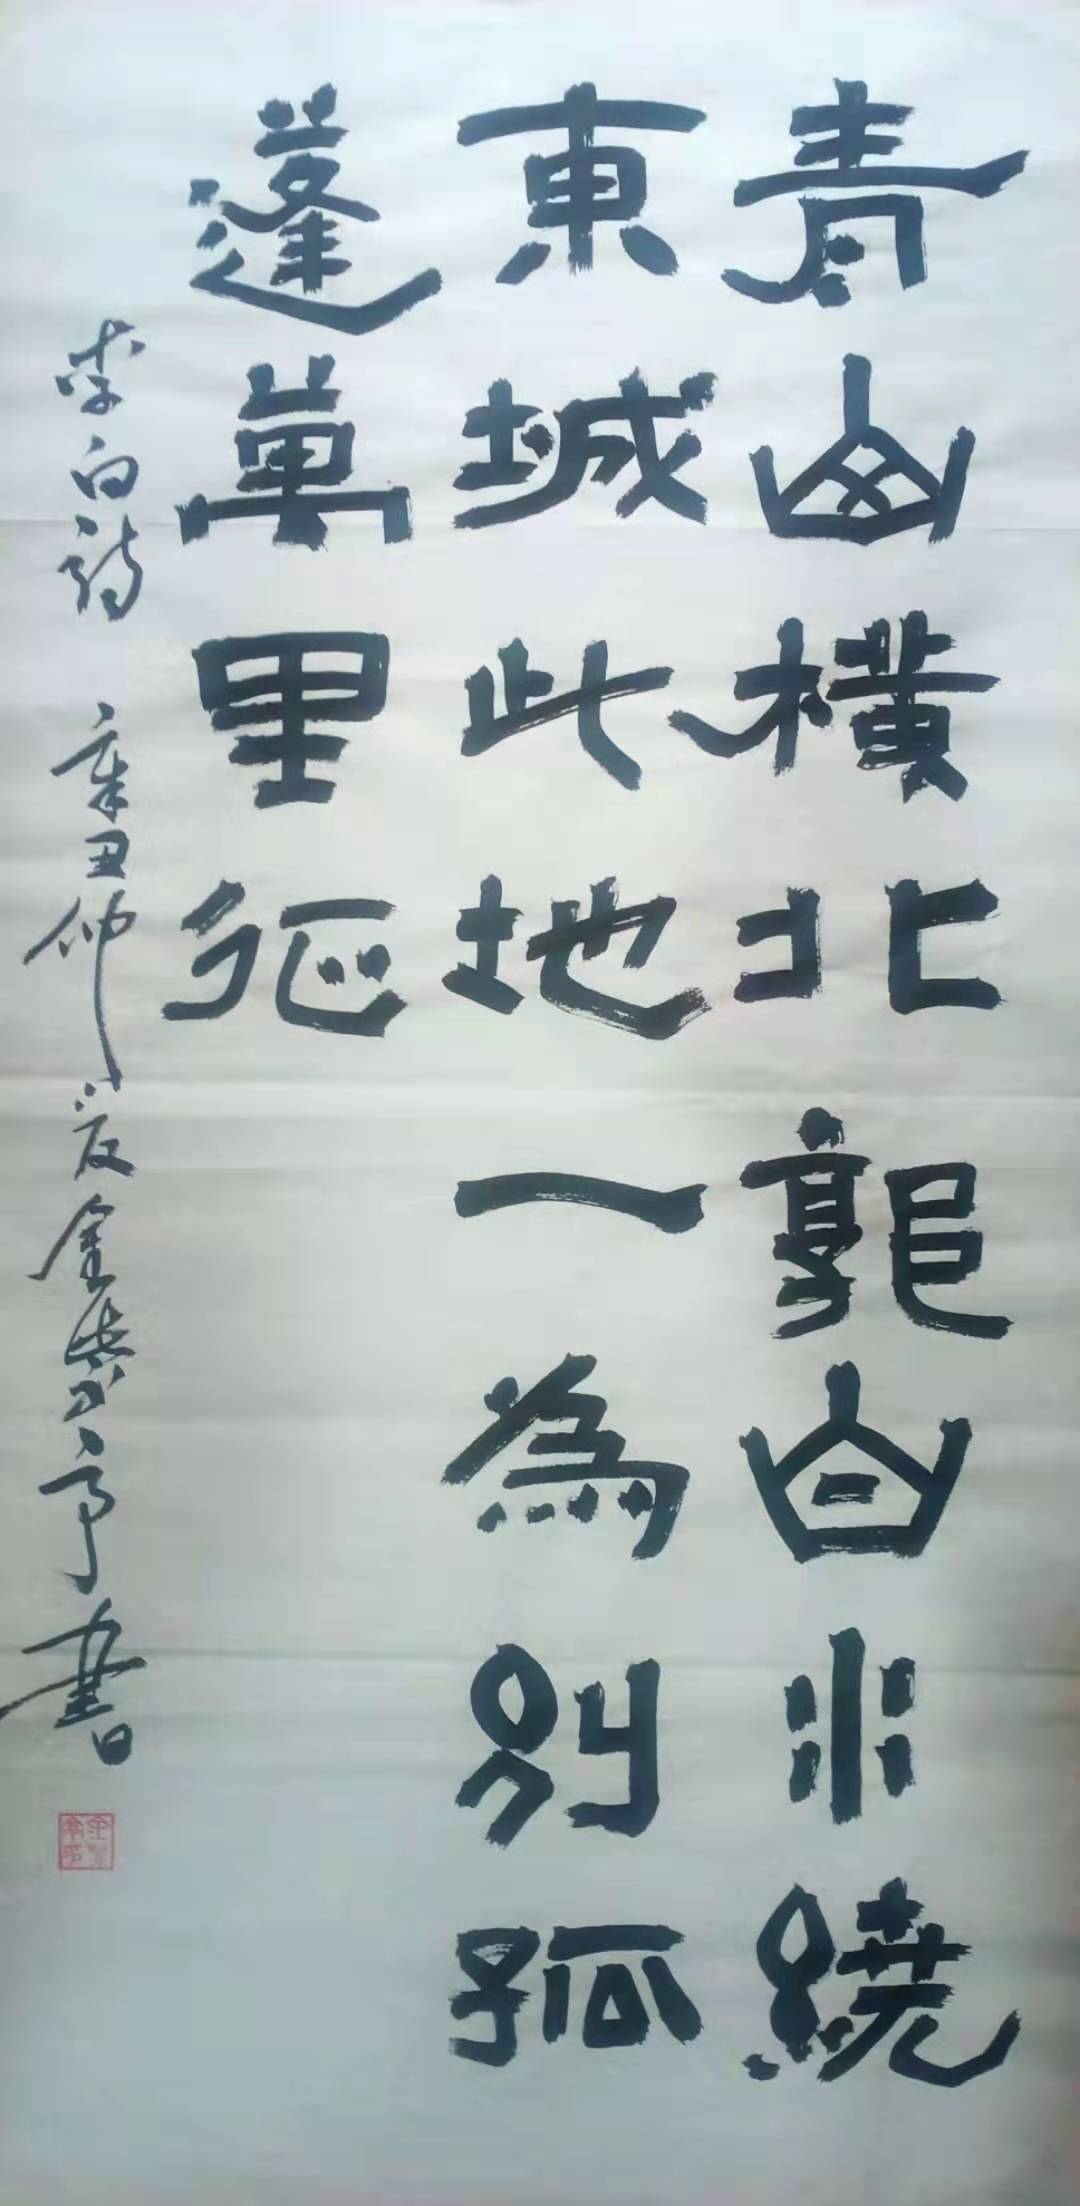 青山橫北郭白水繞
東城此地一為別孤
蓬萬里征
李白詩 辛丑仲夏金亭書